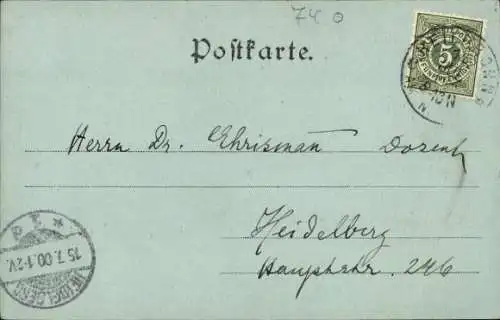 74
Postkarte.
5
Herrn Dr. Ehrismann Dozent
Heidelberg
15.7.00.1-2V.
HEIDELBERG
Hauptstr. 246